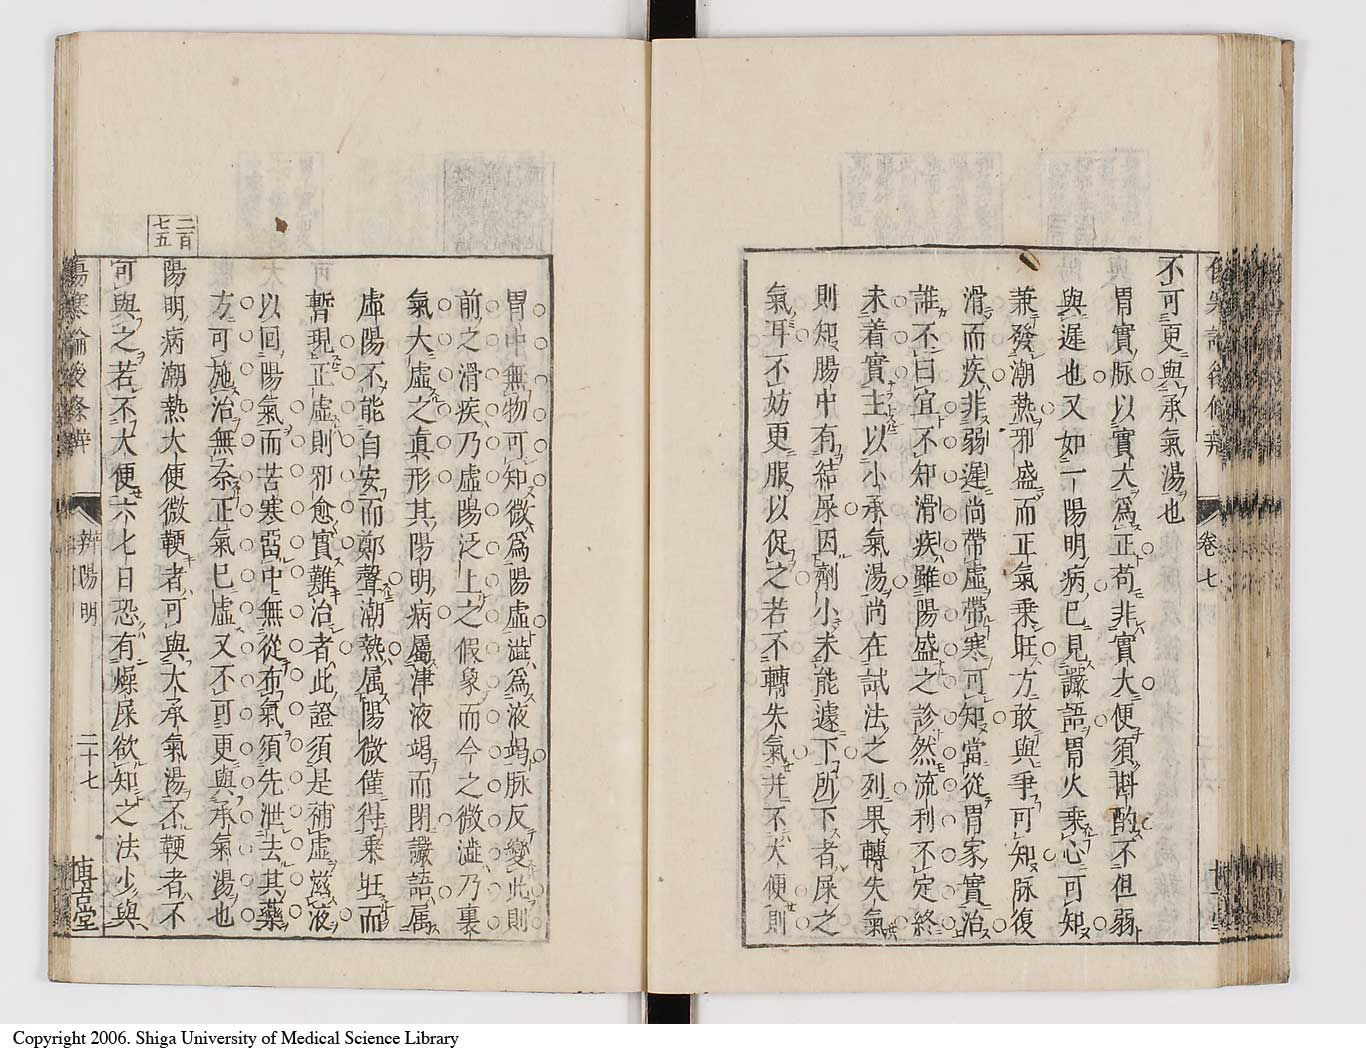 不可更與承氣湯也
胃實脉以實大爲正苟非實大便須斟酌不但弱
與遲也又如一陽明病已見讝語胃火乘心可知
兼發潮熱邪盛而正氣乘旺方敢與爭可知脉復
滑而疾非弱遲尚帶虛帶寒可知當從胃家實治
誰不曰宜不知滑疾雖陽盛之診然流利不定終
未着實主以小承氣湯尚在試法之列果轉失氣
則知腸中有結屎因劑小未能遽下所下者屎之
氣耳不妨更服以促之若不轉失氣并不大便則
卷七
胃中無物可知微爲陽虛澁爲液竭脉反變此則
前之滑疾乃虛陽泛上之假象而今之微澁乃裏
氣大虛之眞形其陽明病屬津液竭而閉讝語属
虛陽不能自安而鄭聲潮熱属陽微僅待乘旺而
暫現正虛則邪愈實難治者此證須是補虛滋液
以回陽氣而苦寒畱中無從布氣須先泄去其藥
方可施治無奈正氣已虛又不可更與承氣湯也
二百七五
陽明病潮熱大便微鞕者可與大承氣湯不鞕者不
可與之若不大便六七日恐有燥屎欲知之法少與
傷寒論後條辨
辨陽明
二十七
博古堂
Copyright 2006. Shiga University of Medical Science Library